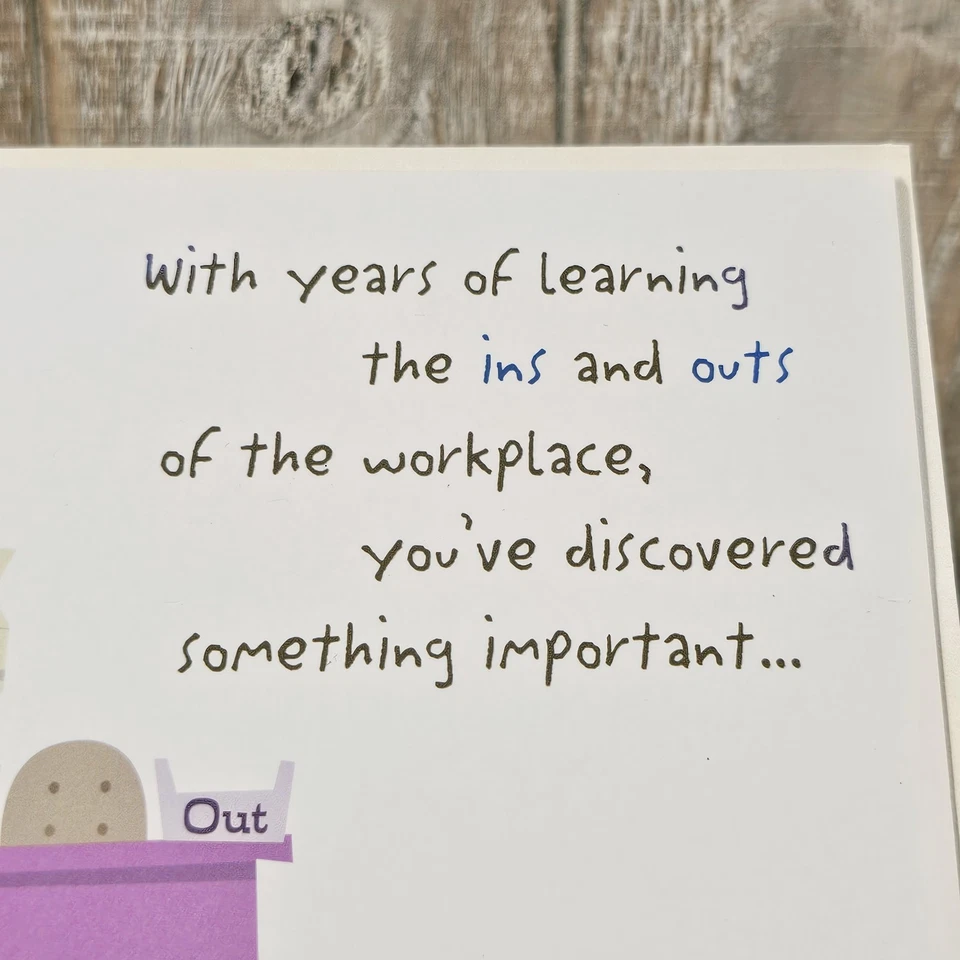 With years of learning
the ins and outs
of the workplace,
you've discovered
something important...
Out